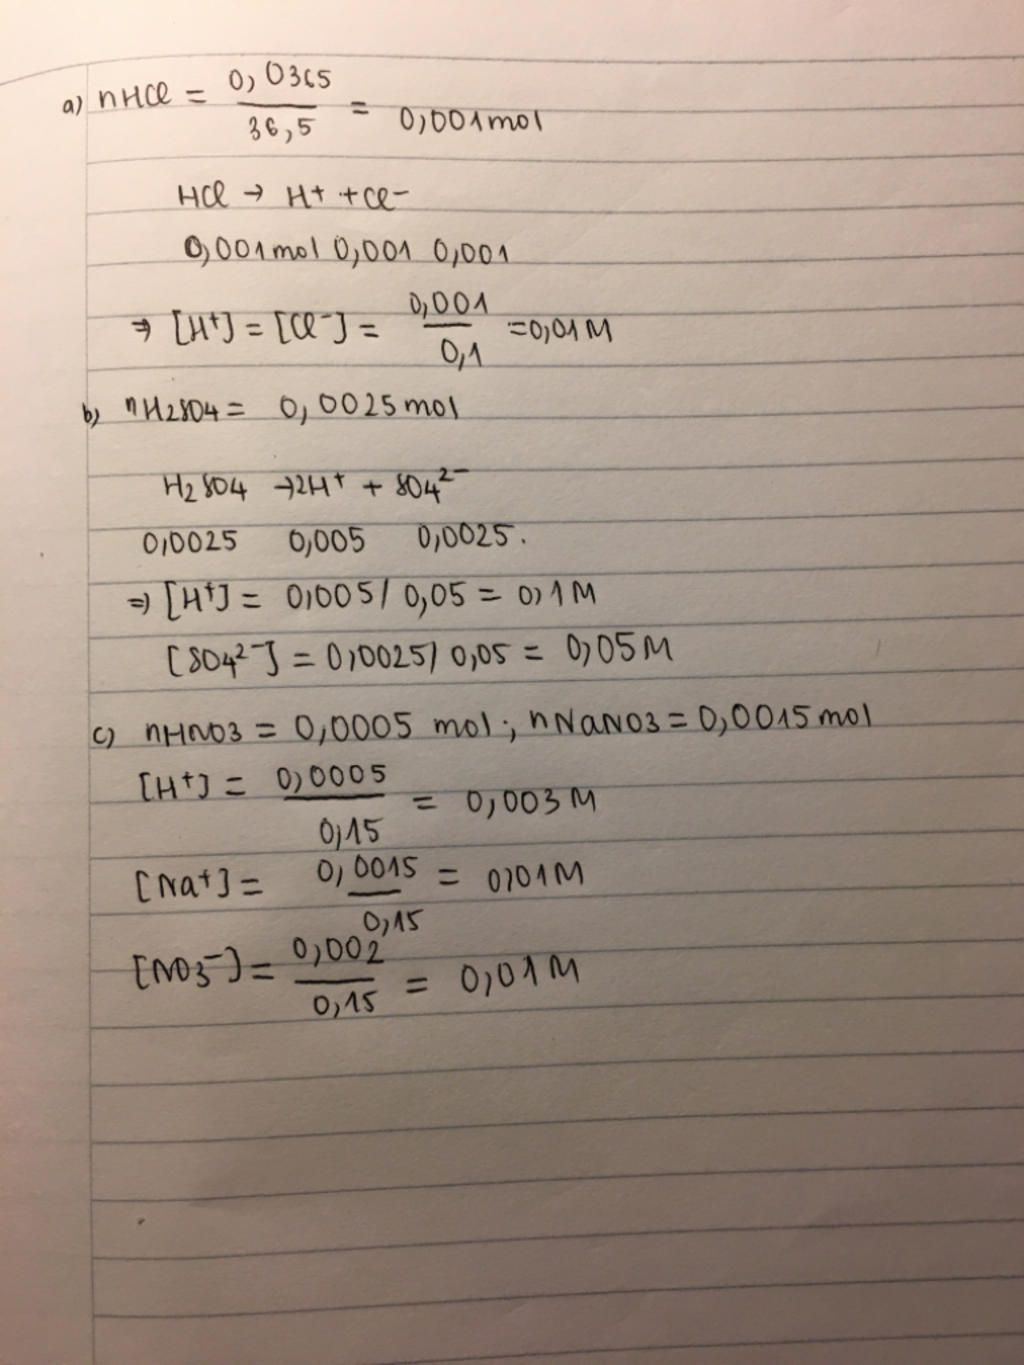 a) nHCl = 0,0365 / 36,5 = 0,001mol
HCl → H+ + Cl-
0,001mol 0,001 0,001
⇒ [H+] = [Cl-] = 0,001 / 0,1 = 0,01M
b) nH2SO4 = 0,0025mol
H2SO4 → 2H+ + SO4^2-
0,0025 0,005 0,0025.
⇒ [H+] = 0,005/ 0,05 = 0,1M
[SO4^2-] = 0,0025/ 0,05 = 0,05M
c) nHNO3 = 0,0005 mol; nNaNO3 = 0,0015mol
[H+] = 0,0005 / 0,15 = 0,003M
[Na+] = 0,0015 / 0,15 = 0,01M
[NO3-] = 0,002 / 0,15 = 0,01M